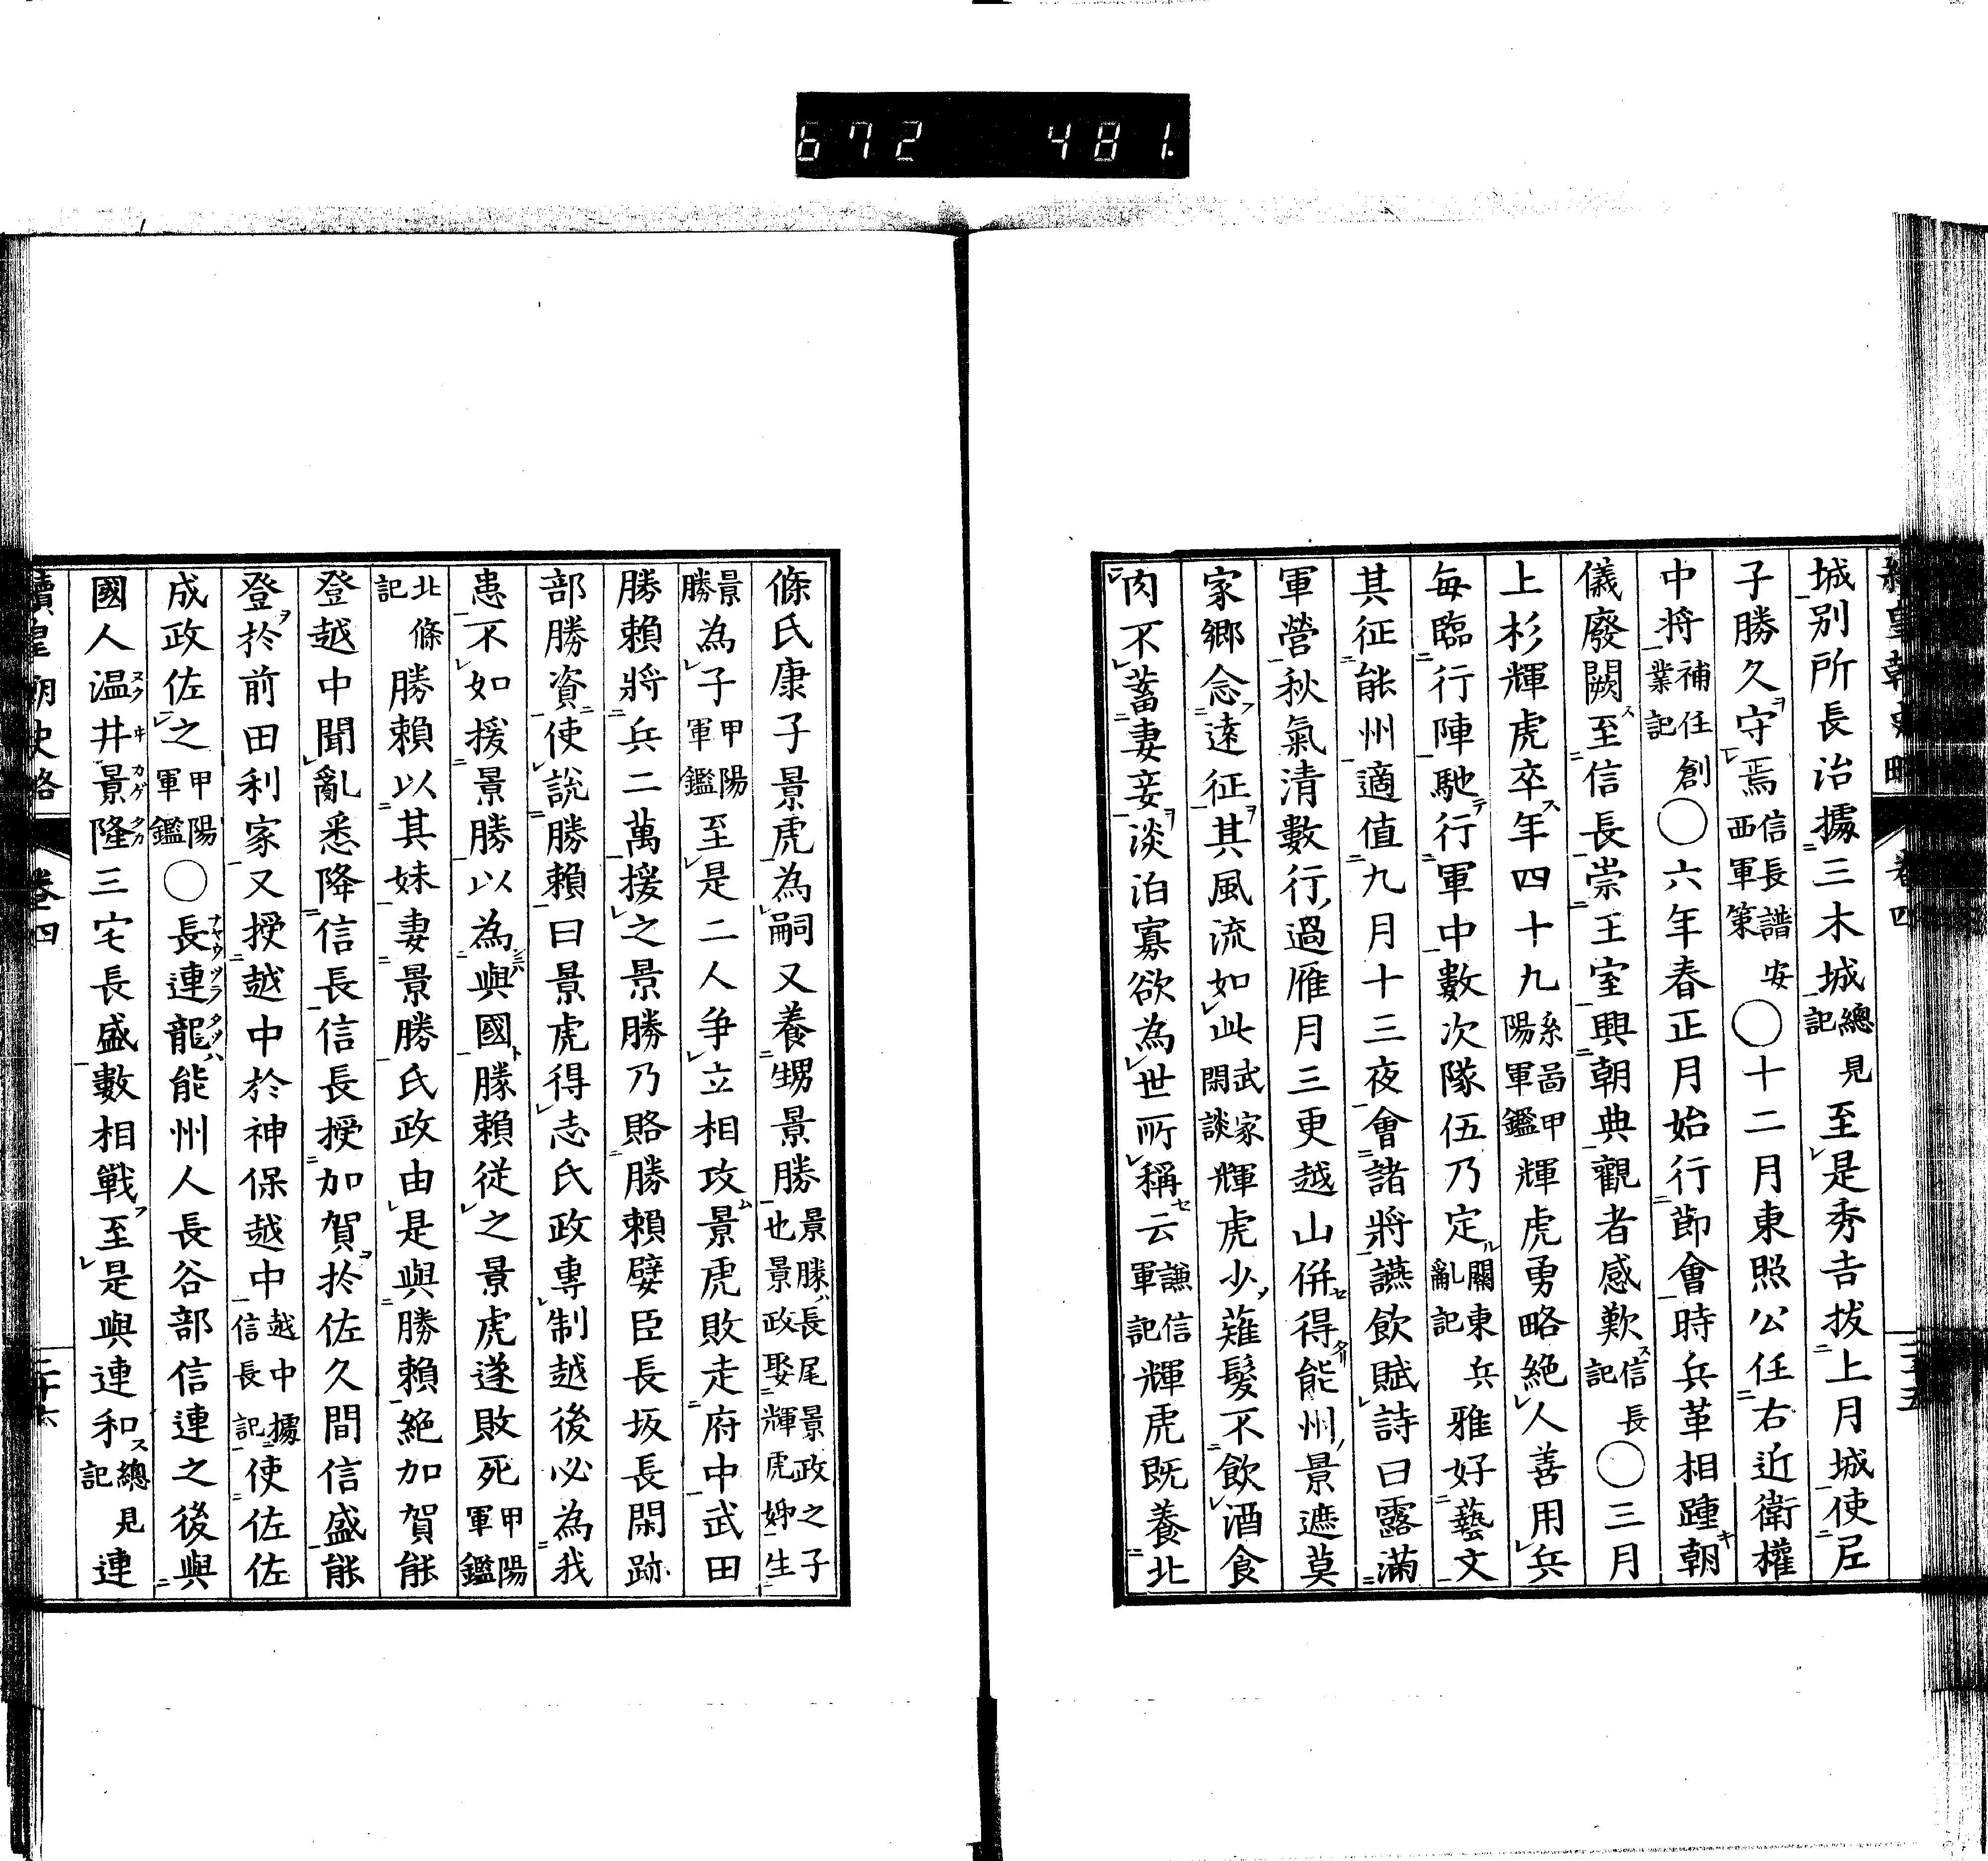 672 481.
城別所長治據三木城總見記至是秀吉拔上月城使尼
子勝久守焉信長譜安西軍策○十二月東照公任右近衛權
中將補任創業記○六年春正月始行節會時兵革相踵朝
儀廢闕至信長崇王室興朝典觀者感歎信長記○三月
上杉輝虎卒年四十九系啚甲陽軍鑑輝虎勇略絶人善用兵
每臨行陣馳行軍中數次隊伍乃定關東兵亂記雅好藝文
其征能州適值九月十三夜會諸將讌飲賦詩曰露滿
軍營秋氣清數行過雁月三更越山併得能州景遮莫
家鄉念遠征其風流如此武家閑談輝虎少薙髮不飲酒食
肉不蓄妻妾淡泊寡欲為世所稱云謙信軍記輝虎既養北
條氏康子景虎為嗣又養甥景勝景勝長尾景政之子也景政娶輝虎姊生
景勝為子甲陽軍鑑至是二人争立相攻景虎敗走府中武田
勝賴將兵二萬援之景勝乃賂勝賴嬖臣長坂長閑跡
部勝資使說勝賴曰景虎得志氏政專制越後必為我
患不如援景勝以為與國勝賴從之景虎遂敗死甲陽軍鑑
北條記勝賴以其妹妻景勝氏政由是與勝賴絶加賀能
登越中聞亂悉降信長信長授加賀於佐久間信盛能
登於前田利家又授越中於神保越中越中據信長記使佐佐
成政佐之甲陽軍鑑○長連龍能州人長谷部信連之後與
國人温井景隆三宅長盛數相戰至是與連和總見記連
續皇朝史略 卷四